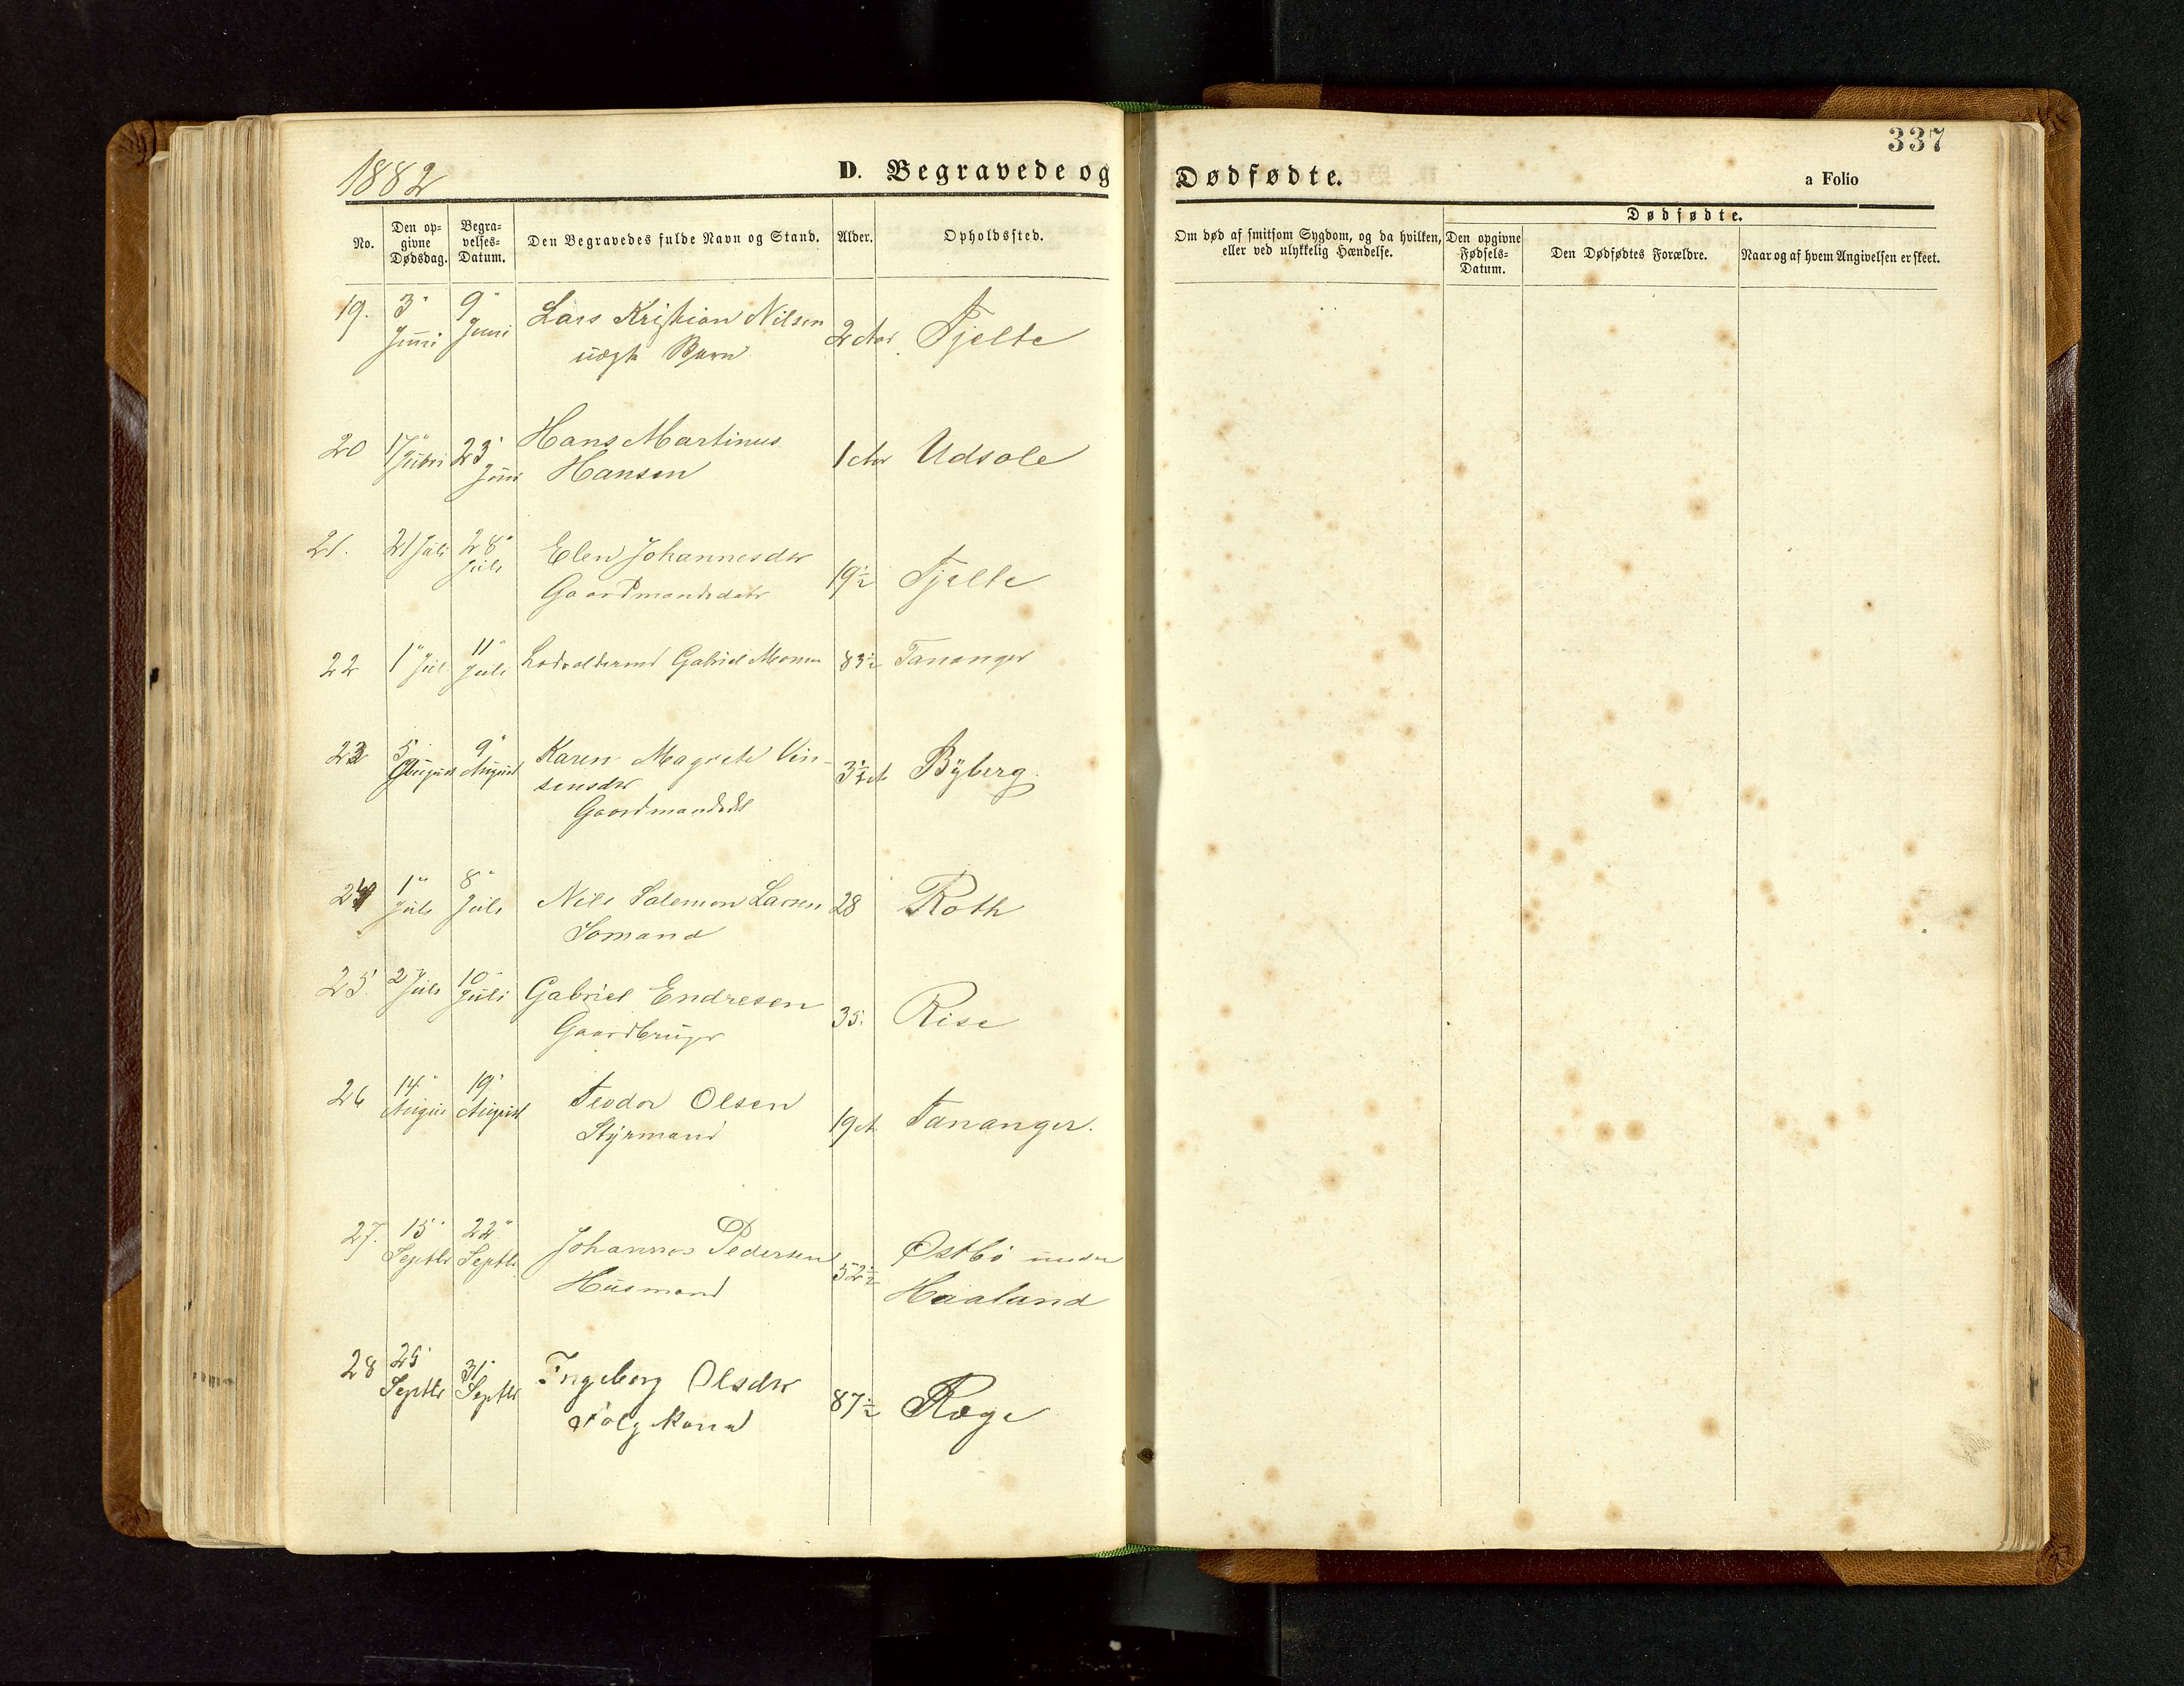 1882
D. Begravede og
Dødfødte.
337
a Folio
No.
Den op=
givne
Dødsdag.
Begra=
velses=
Datum.
Den Begravedes fulde Navn og Stand.
Alder.
Opholdssted.
Om død af smitsom Sygdom, og da hvilken,
eller ved ulykkelig Hændelse.
Dødfødte.
Den opgivne
Fødsels=
Datum.
Den Dødfødtes Forældre.
Naar og af hvem Angivelsen er skeet.
19. 3" 9" Lars Kristian Nilsen
Juni Juni uægte Barn 2 Aar Tjelte
20 17" 23" Hans Martinus
Juni Hansen 1 Aar Udsole
21. 21 Juli 28" Elen Johannesdtr
Juli Gaardmandsdatr 19½ Tjelte
22 1" Juli 11" Gabriel Monsen 83½ Tananger
Juli
23 5" 9" Karen Magrete Vin-
August August sensdtr Byberg
Gaardmandsdtr
24 1" 8" Nils Salemon Larsen 28 Roth
Juli Juli Sømand
25. 2" Juli 10" Gabriel Endresen
Juli Gaardbruger 35. Risa
26 14" 19" Teodor Olsen
August Styrmand 19 A Tananger.
27. 15" 22" Johannes Pedersen Østbø under
Septbr Septbr Husmand 52½ Haaland
28 25" 31" Ingeborg Olsdtr
Septbr Septbr Kone 87½ Ræge